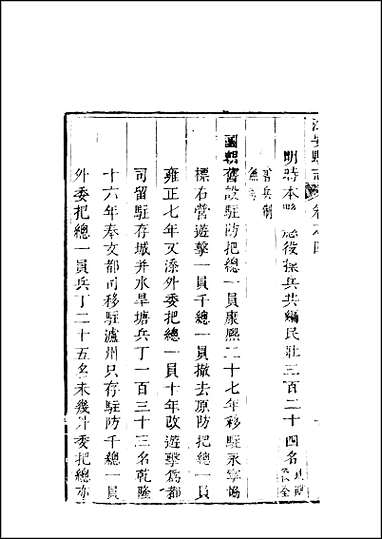 江安縣志 卷之四
官兵制
明時本縣 應役操兵共編民壯三百二十四名
國朝舊設駐防把總一員康熙二十七年移駐永寧協
標右營遊擊一員千總一員撤去原防把總一員
雍正七年又添外委把總一員十年改遊擊爲都
司留駐存城并水旱塘兵丁一百三十三名乾隆
十六年奉文都司移駐瀘州只存駐防千總一員
外委把總一員兵丁二十五名未幾外委把總亦